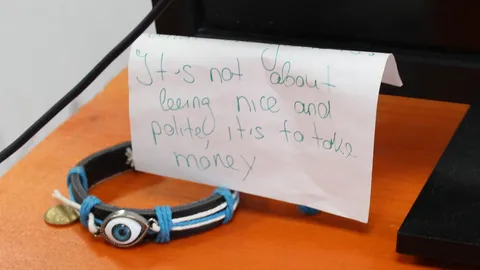 It's not about
being nice and
polite, it's to take
money